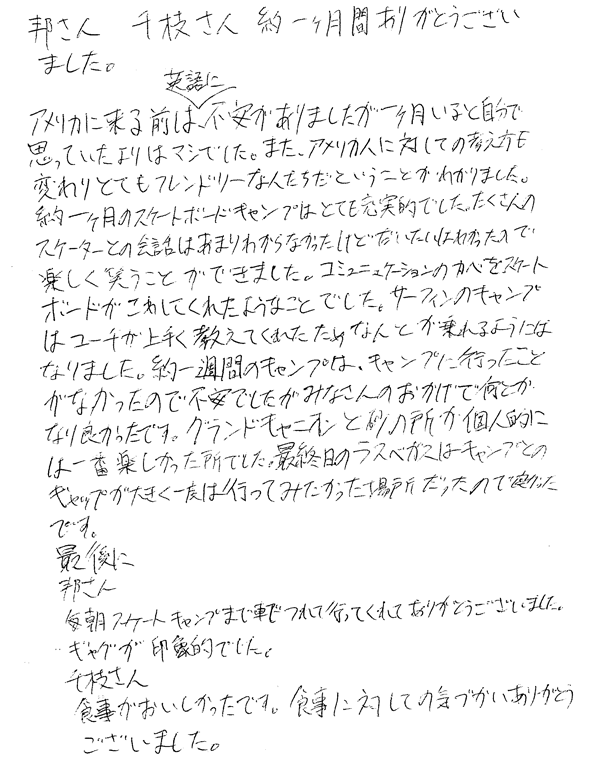 邦さん 千枝さん 約一ヶ月間ありがとうござい
ました。
英語に
アメリカに来る前は、不安がありましたが一ヶ月いると自分で
思っていたよりはマシでした。また、アメリカ人に対しての考え方も
変わりとてもフレンドリーな人たちだということがわかりました。
約一ヶ月のスケートボードキャンプはとても充実的でした。たくさんの
スケーターとの会話はあまりわからなかったけどだいたいはわかったので
楽しく笑うことができました。コミュニュケーションのカベをスケート
ボードがこわしてくれたようなことでした。サーフィンのキャンプ
はコーチが上手く教えてくれたためなんとか乗れるようには
なりました。約一週間のキャンプは、キャンプに行ったこと
がなかったので不安でしたがみなさんのおかげで何とか
なり良かったです。グランドキャニオンと砂の所が個人的に
は一番楽しかった所でした。最終日のラスベガスはキャンプとの
ギャップが大きく一度は行ってみたかった場所だったので良かった
です。
最後に
邦さん
毎朝スケートキャンプまで車でつれて行ってくれてありがとうございました。
ギャグが印象的でした。
千枝さん
食事がおいしかったです。食事に対しての気づかいありがとう
ございました。